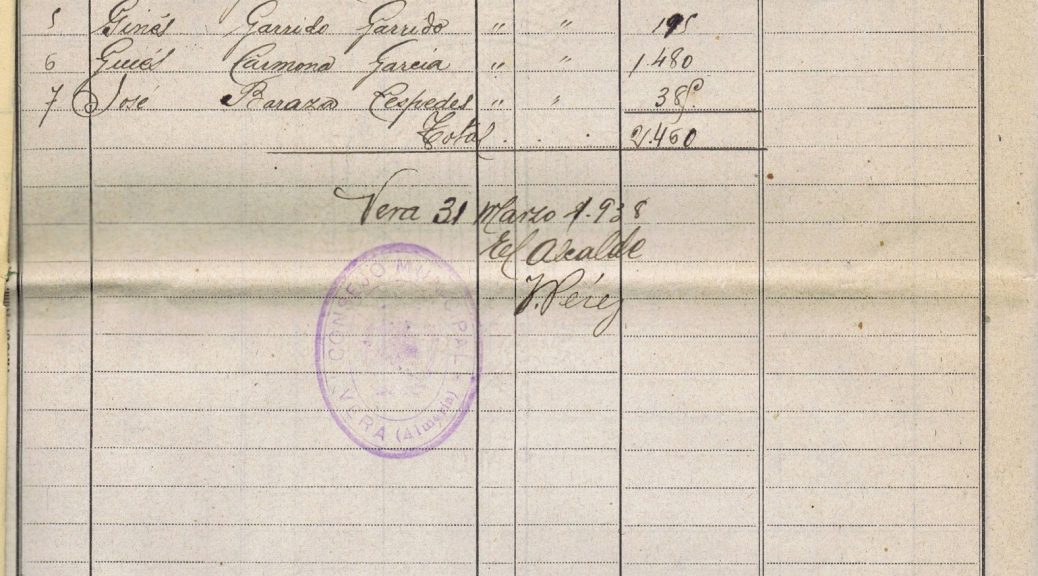 5 Ginés Garrido Garrido " " 195
6 Ginés Carmona García " " 1.480
7 José Baraza Cespedes " " 385
Total . . . 2.460
Vera 31 Marzo 1.938
El Alcalde
Pérez
CONSEJO MUNICIPAL
VERA (Almería)